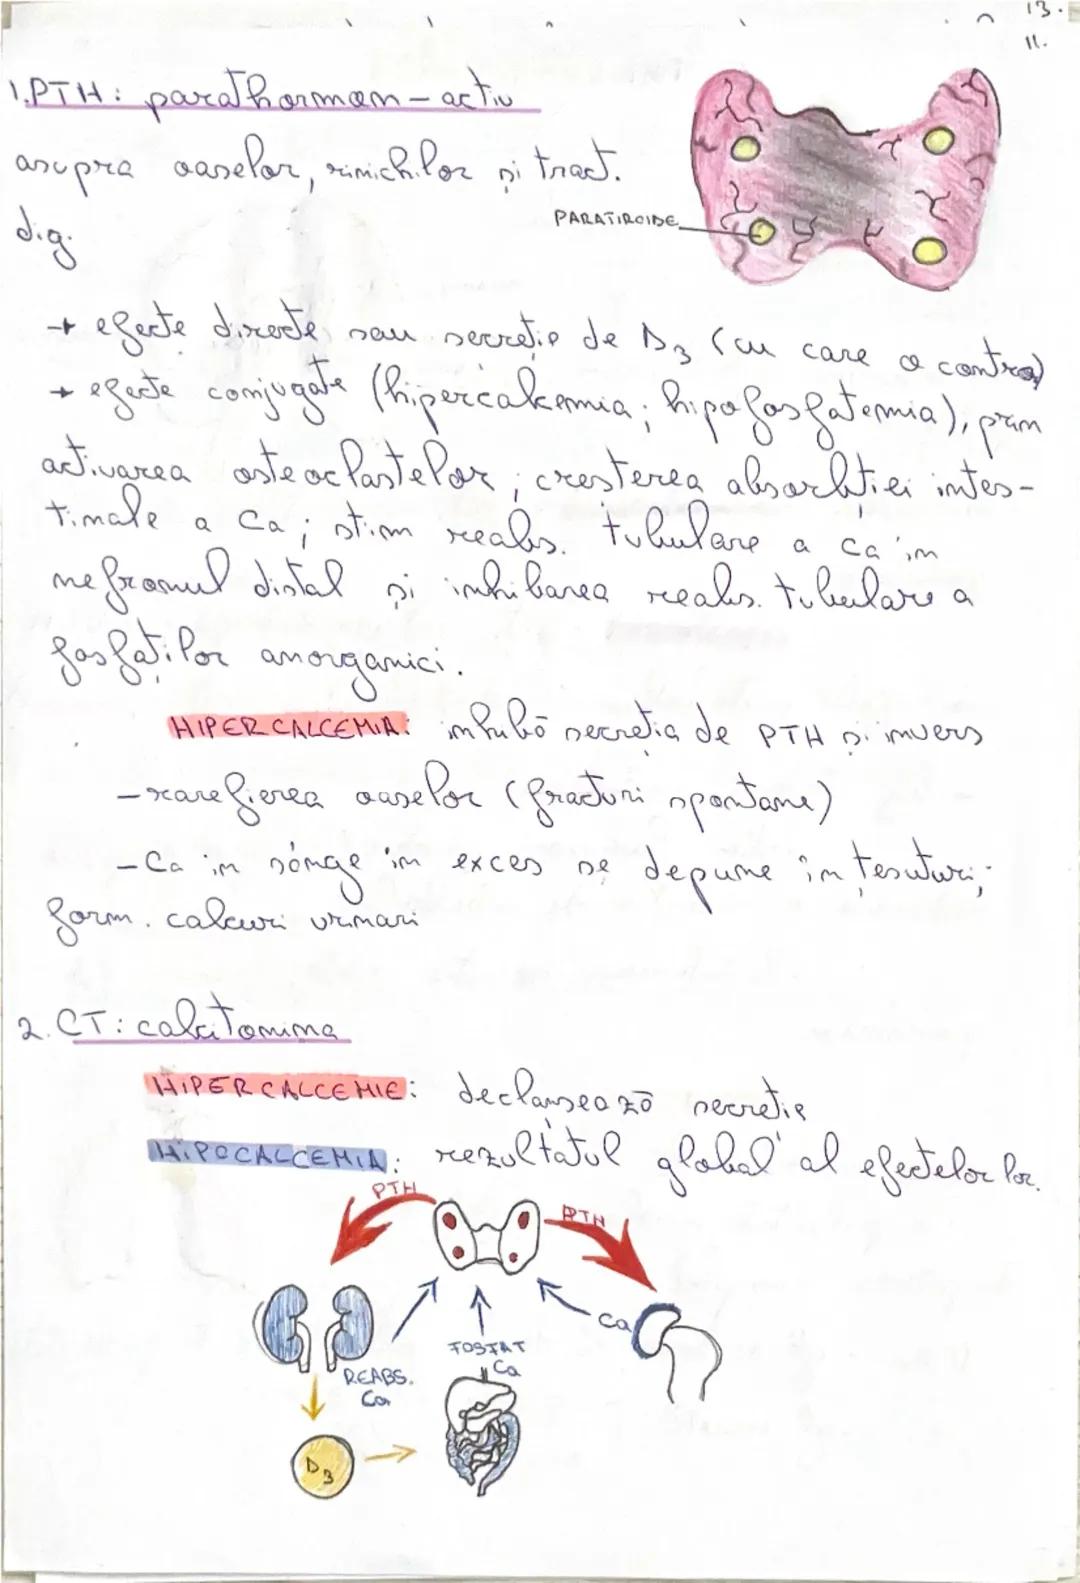 13.
11.
1.PTH: parathormon - activ
asupra oaselor, rinichilor și tract.
dig.
PARATIROIDE
→ efecte directe sau secreție de D3 (cu care a contra)
→ efecte conjugate (hipercalcemia; hipofosfatemia), prin
activarea osteoclastelor; creșterea absorbției intes-
tinale a Ca; stim reabs. tubulare a Ca în
nefronul distal și inhibarea reabs. tubulare a
fosfaților anorganici.
HIPERCALCEMIA: inhibă secreția de PTH și invers
- rarefierea oaselor (fracturi spontane)
- Ca în sânge în exces se depune în țesuturi;
form. calculi urinari
2. CT: calcitonina
HIPERCALCEMIE: declanșează secreție
HIPOCALCEMIA: rezultatul global al efectelor lor.
PTH
PTH
Ca
FOSFAT
Ca
REABS.
Ca
D3